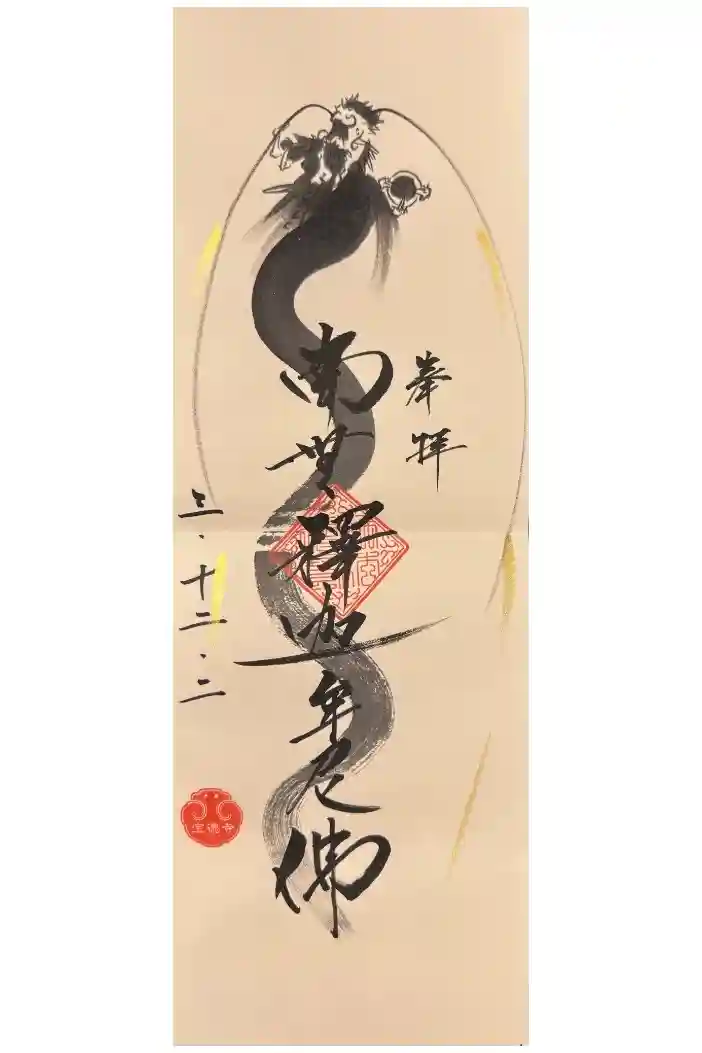 奉拝
南無釋迦牟尼佛
三・十二・二
宝徳寺